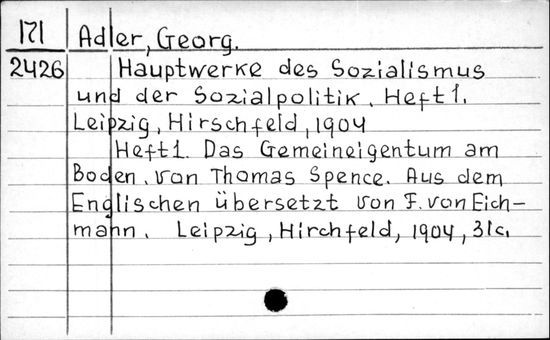 171 Adler, Georg.
2426 Hauptwerke des Sozialismus
und der Sozialpolitik. Heft 1.
Leipzig, Hirschfeld, 1904
Heft 1. Das Gemeineigentum am
Boden. von Thomas Spence. Aus dem
Englischen übersetzt von F. von Eich-
mann. Leipzig, Hirchfeld, 1904, 31c.